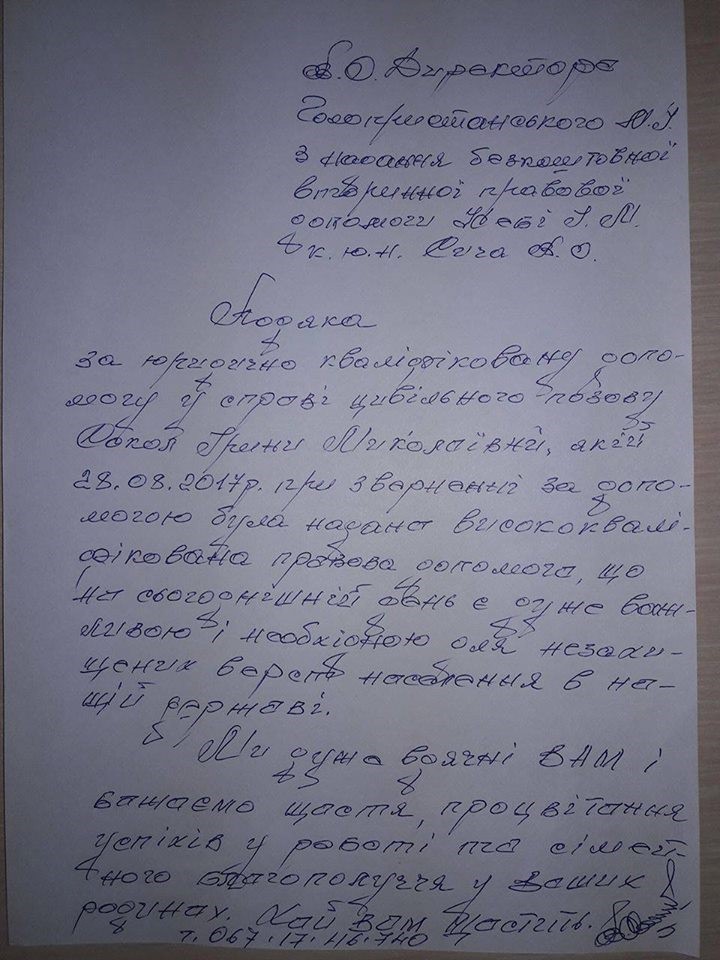 В.О. Директора
Голопристанського М.Ц.
з надання безкоштовної
вторинної правової
допомоги І.М.
к.ю.н. Сича В.О.
Подяка
за юридично кваліфіковану допо-
могу у справі цивільного позову
Сокол Ірини Миколаївни, якій
28.08.2017р. при зверненні за допо-
могою була надана висококвалі-
фікована правова допомога, що
на сьогоднішній день є дуже важ-
ливою і необхідною для незахи-
щених верств населення в на-
шій державі.
Ми дуже вдячні ВАМ і
бажаємо щастя, процвітання
успіхів у роботі та сімей-
ного благополуччя у Ваших
родинах. Хай вам щастить.
т. 067.17.46.740